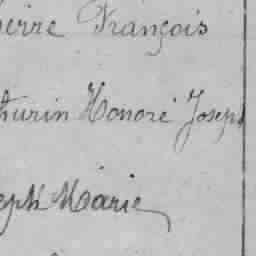 ierre François
thurin Honoré Joseph
eph Marie